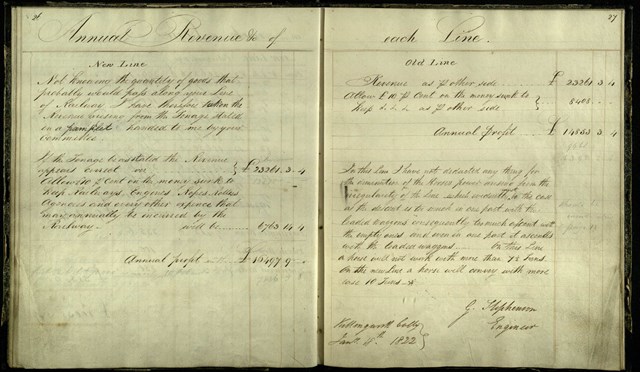 26
Annual Revenue &c of
New Line
Not knowing the quantity of goods that
probably would pass along your Line
of Railway I have therefore taken the
Revenue arising from the Tonage stated
in a pamphlet handed to me by your
Committee.
If the Tonage be as stated the Revenue
appears correct viz £ 23261 . 3 . 4
Allow 10 P Cent on the money sunk to
keep Railways, Engines, Ropes,
Agencies and every other expence that
may annually be incurred by the
Railway will be 6763 . 14 . 4
Annual profit £ 16497 . 9 . -
27
each Line.
Old Line
Revenue as P other side £ 23261 . 3 . 4
Allow £ 10 P Cent on the money sunk to
keep &c &c &c as P other side 8408 . -
Annual profit £ 14853 . 3 . 4
In this Line I have not deducted any thing for
the diminution of the Horses power arising from the
irregularity of the line which evidently is the case
as the descent is so much in one part with the
loaded waggons consequently too much ascent with
the empty ones and even in one part it ascends
with the loaded waggons. On this Line
a horse will not work with more than 7½ Tons.
On the new Line a horse will convey with more
ease 10 Tons.
G. Stephenson
Engineer
Killingworth Colly
Jany 1822